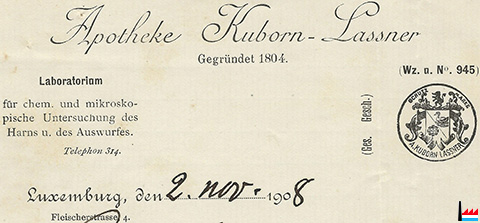 Apotheke Kuborn-Lassner
Gegründet 1804.
(Wz. u. No. 945)
Laboratorium
für chem. und mikrosko-
pische Untersuchung des
Harns u. des Auswurfes.
Telephon 314.
(Ges. Gesch.)
SCHUTZ MARKE
A. KUBORN LASSNER
Luxemburg, den 2. nov. 1908
Fleischerstrasse 4.